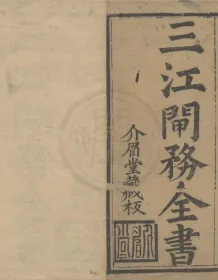 三江閘務全書
介眉堂藏板